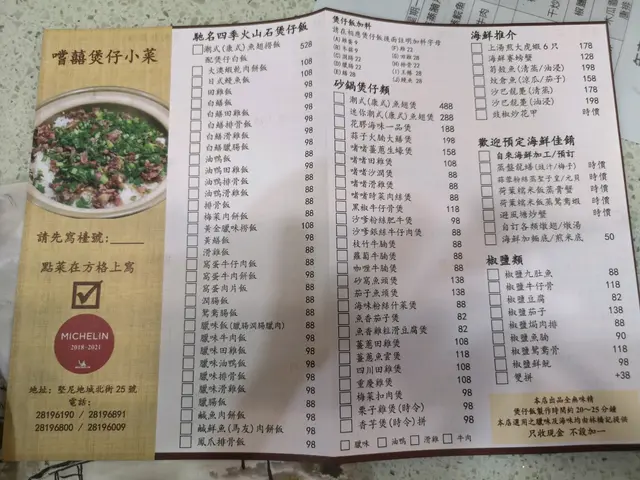 嚐囍煲仔小菜
請先寫檯號:____
點菜在方格上寫
MICHELIN
2018-2021
地址: 堅尼地城北街25號
電話:
28196190 / 28196891
28196800 / 28196009
馳名四季火山石煲仔飯
潮式(康式)魚翅撈飯 528
配煲仔白飯 108
大澳蝦乾肉餅飯 108
日式鰻魚飯 108
田雞飯 98
白鱔飯 98
白鱔田雞飯 98
白鱔排骨飯 98
白鱔臘腸飯 98
油鴨飯 88
油鴨田雞飯 98
油鴨排骨飯 98
油鴨滑雞飯 98
排骨飯 88
梅菜肉餅飯 88
黃金臘味撈飯 108
黃鱔飯 98
滑雞飯 88
窩蛋牛仔肉飯 88
窩蛋牛肉餅飯 98
窩蛋肉片飯 88
潤腸飯 88
鴛鴦腸飯 88
臘味飯(臘腸潤腸臘肉) 88
臘味牛肉飯 98
臘味田雞飯 98
臘味油鴨飯 98
臘味排骨飯 98
臘味滑雞飯 98
臘腸飯 88
鹹魚肉餅飯 98
鹹鮮魚(馬友)肉餅飯 98
鳳爪排骨飯 98
煲仔飯加料
請在相應煲仔飯後面註明加料字母
砂鍋煲仔類
潮式(康式)魚翅煲 488
迷你潮式(康式)魚翅煲 288
花膠海味一品煲 188
蒜子火腩大鱔煲 198
啫啫薑蔥生蠔煲 158
啫啫田雞煲 108
啫啫沙潤煲 88
啫啫滑雞煲 88
啫啫時菜肉絲煲 88
黑椒牛仔骨煲 118
沙嗲粉絲肥牛煲 98
沙嗲銀絲牛仔肉煲 98
枝竹牛腩煲 88
蘿蔔牛腩煲 88
咖喱牛腩煲 88
砂窩魚頭煲 138
茄子魚頭煲 138
海味粉絲什菜煲 88
魚香茄子煲 82
魚香雞粒滑豆腐煲 82
薑蔥田雞煲 108
薑蔥魚雲煲 118
四川田雞煲 108
重慶雞煲 108
梅菜扣肉煲 98
栗子雞煲(時令) 98
香芋煲(時令)拼 98
臘味
油鴨
滑雞
牛肉
海鮮推介
上湯煎大虎蝦6只 178
海鮮賽螃蟹 128
筍殼魚(清蒸/油浸) 198
鮫魚(涼瓜/茄子) 158
沙巴龍躉(清蒸) 178
沙巴龍躉(油浸) 198
豉椒炒花甲 時價
歡迎預定海鮮佳餚
自來海鮮加工/預訂
蒸盤龍鱔(豉汁/梅子) 時價
蒜蓉粉絲蒸聖子皇/元貝 時價
荷葉糯米飯蒸膏蟹 時價
荷葉糯米飯蒸鴛鴦蝦 時價
避風塘炒蟹 時價
自訂各類燉翅/燉湯
海鮮加麵底/煎米底 50
椒鹽類
椒鹽九肚魚 88
椒鹽牛仔骨 118
椒鹽豆腐 82
椒鹽茄子 138
椒鹽焗肉排 88
椒鹽魚腩 90
椒鹽鴛鴦骨 118
椒鹽鮮魷 98
雙拼 +38
本店出品全無味精
煲仔飯製作時間約20~25分鐘
本店選用之臘味及海味均由林構記提供
只收現金 不設加一